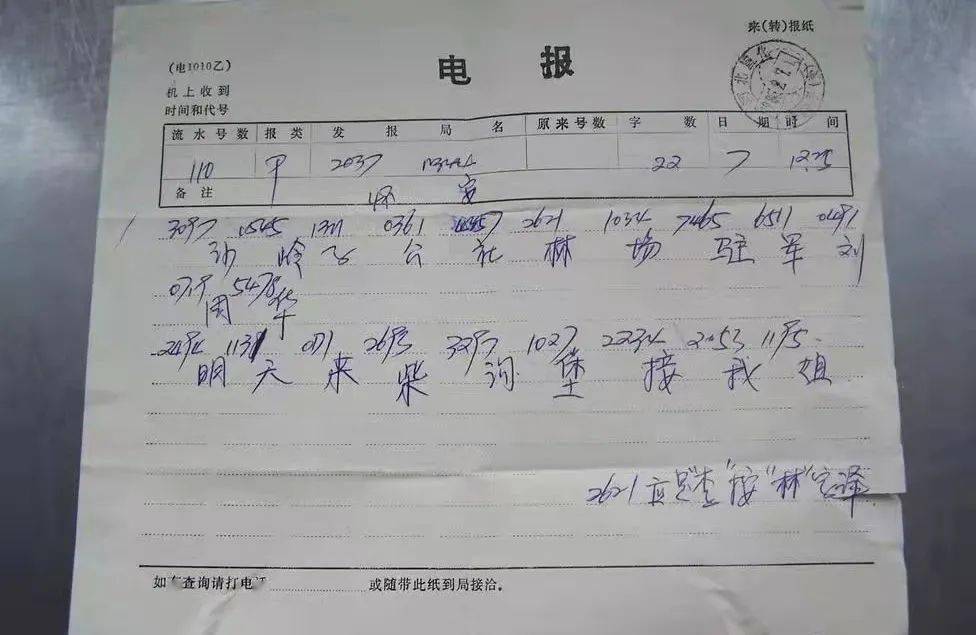 来(转)报纸
(电1010乙)
电 报
机上收到
时间和代号
流水号数 报类 发报局名 原来号数 字数 日期时间
110 甲 2037 22 7 1225
备注
0361 2621 1034 7465 6511 0491
沙岭子公社林场驻军刘
0719 5478
周华
2494 1131 2693 1027 2234 2053 1195
明天来柴沟堡接我姐
2621 查"按"林"
如 查询请打电 或随带此纸到局接洽。